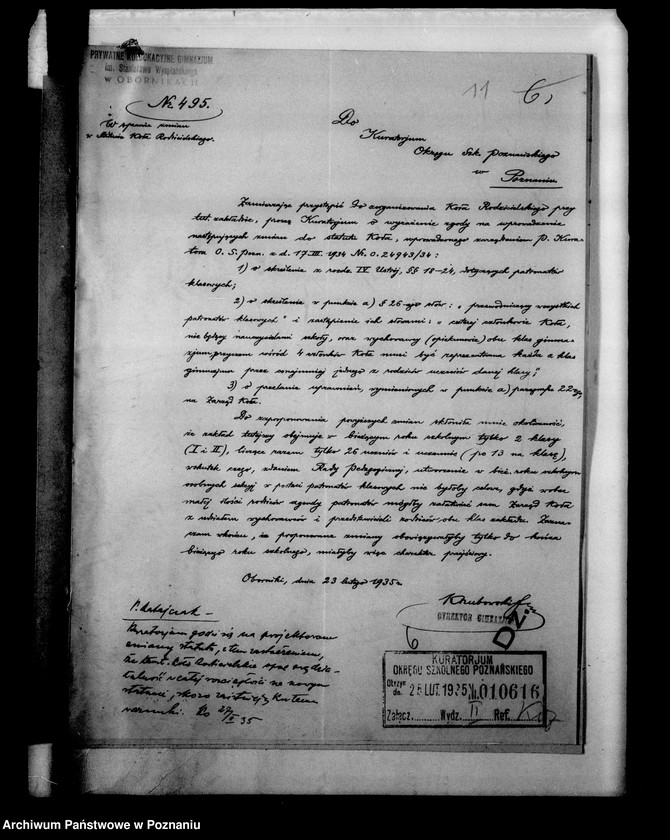 PRYWATNE KOEDUKACYJNE GIMNAZJUM
im. Stanisława Wyspiańskiego
W OBORNIKACH
11 6,
№ 495.
W sprawie zmian
w Statucie Koła Rodzicielskiego.
Do
Kuratorjum
Okręgu Szk. Poznańskiego
w
Poznaniu
Zamierzając przystąpić do zorganizowania Koła Rodzicielskiego przy
tut. zakładzie, proszę Kuratorjum o wyrażenie zgody na wprowadzenie
następujących zmian do statutu Koła, wprowadzonego zarządzeniem P. Kura-
tora O. S. Pozn. z d. 17.III. 1934 № 0.24943/34:
1) o skreślenie z rozdz. IV Ustrój, §§ 18-24, dotyczących patronatów
klasowych;
2) o skreślenie w punkcie a) § 26-ego słów: „przewodniczący wszystkich
patronatów klasowych" i zastąpienie ich słowami: „czterej członkowie Koła,
nie będący nauczycielami szkoły, oraz wychowawcy (opiekunowie) obu klas gimna-
zjum, przyczem wśród 4 członków Koła musi być reprezentowana każda z klas
gimnazjum przez najmniej jednego z rodziców uczniów danej klasy;"
3) o przelanie uprawnień, wymienionych w punkcie a) paragrafu 22-go,
na Zarząd Koła.
Do zaproponowania powyższych zmian skłoniła mnie okoliczność,
że zakład tutejszy obejmuje w bieżącym roku szkolnym tylko 2 klasy
(I i II), liczące razem tylko 26 uczniów i uczennic (po 13 na klasę),
wskutek czego, zdaniem Rady Pedagogicznej, utworzenie w bież. roku szkolnym
osobnych sekcyj w postaci patronatów klasowych nie byłoby celowe, gdyż wobec
małej ilości rodziców agendy patronatów mógłby załatwiać sam Zarząd Koła
z udziałem wychowawców i przedstawicieli rodziców obu klas zakładu. Zazna-
czam wkońcu, że proponowane zmiany obowiązywałyby tylko do końca
bieżącego roku szkolnego, miałyby więc charakter przejściowy.
Oborniki, dnia 23 lutego 1935 r.
DYREKTOR GIMNAZJUM
P. Ratajczak –
Kuratorjum godzi się na projektowane
zmiany statutu, z tem zastrzeżeniem,
że tamt. Koło Rodzicielskie
27/II 35
KURATORJUM
OKRĘGU SZKOLNEGO POZNAŃSKIEGO
Otrzym.
dn. 25 LUT. 1935 № 010616
Załącz. Wydz. II Ref.
Archiwum Państwowe w Poznaniu